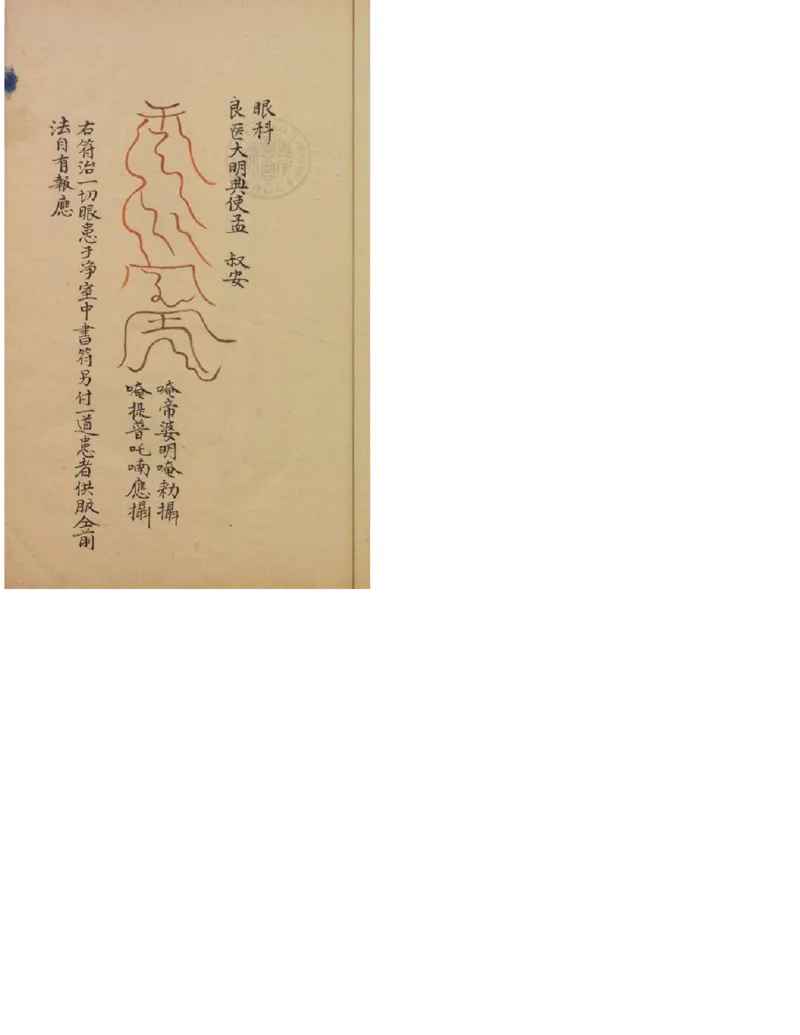 眼科
良医大明典使孟 叔安
唵帝婆明唵勑攝
唵提普吒喃應攝
右符治一切眼患于净室中書符另付一道患者供服仝前
法自有報應